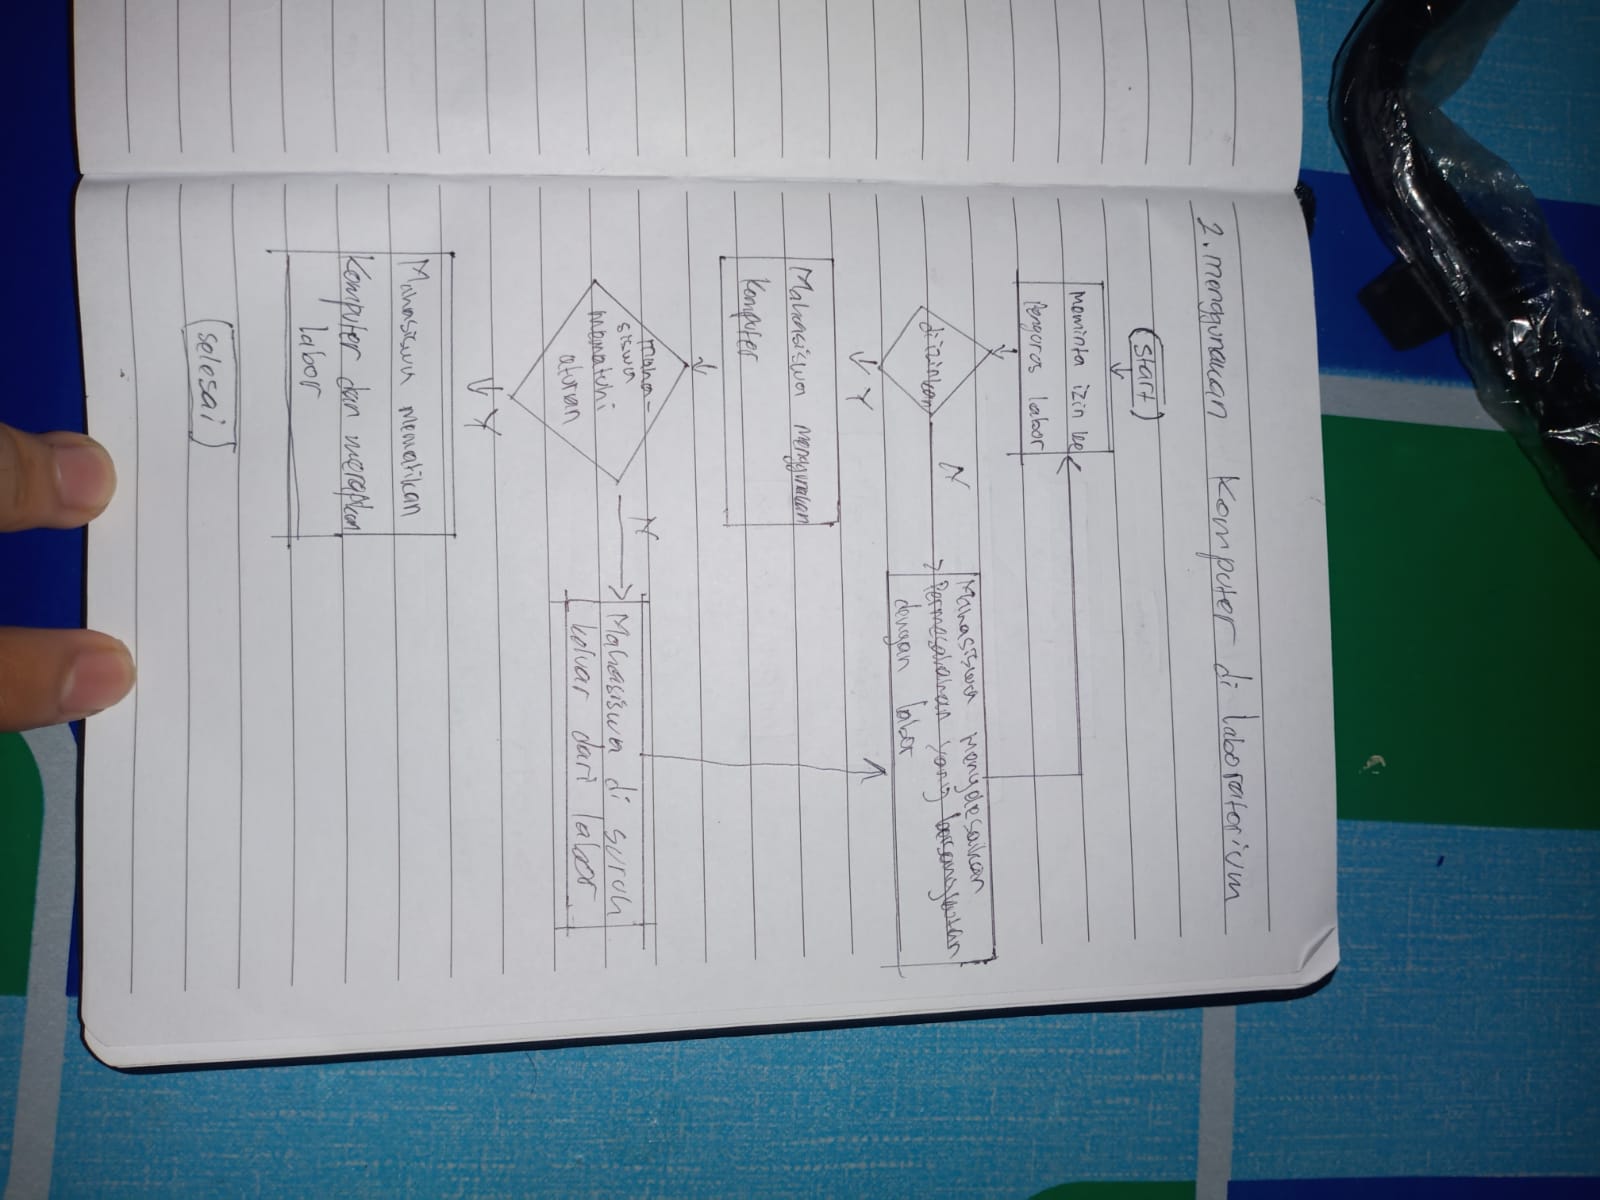 2. menggunakan Komputer di laboratorium
Start
Meminta izin ke
Pengurus labor
diizinkan
N
Mahasiswa menydesaikan
Permasalahan yang bersangkutan
dengan labor
Y
Mahasiswa menggunakan
Komputer
maha-
siswa
mematuhi
aturan
N
Mahasiswa di suruh
keluar dari labor
Y
Mahasiswa mematikan
Komputer dan merapikan
labor
selesai